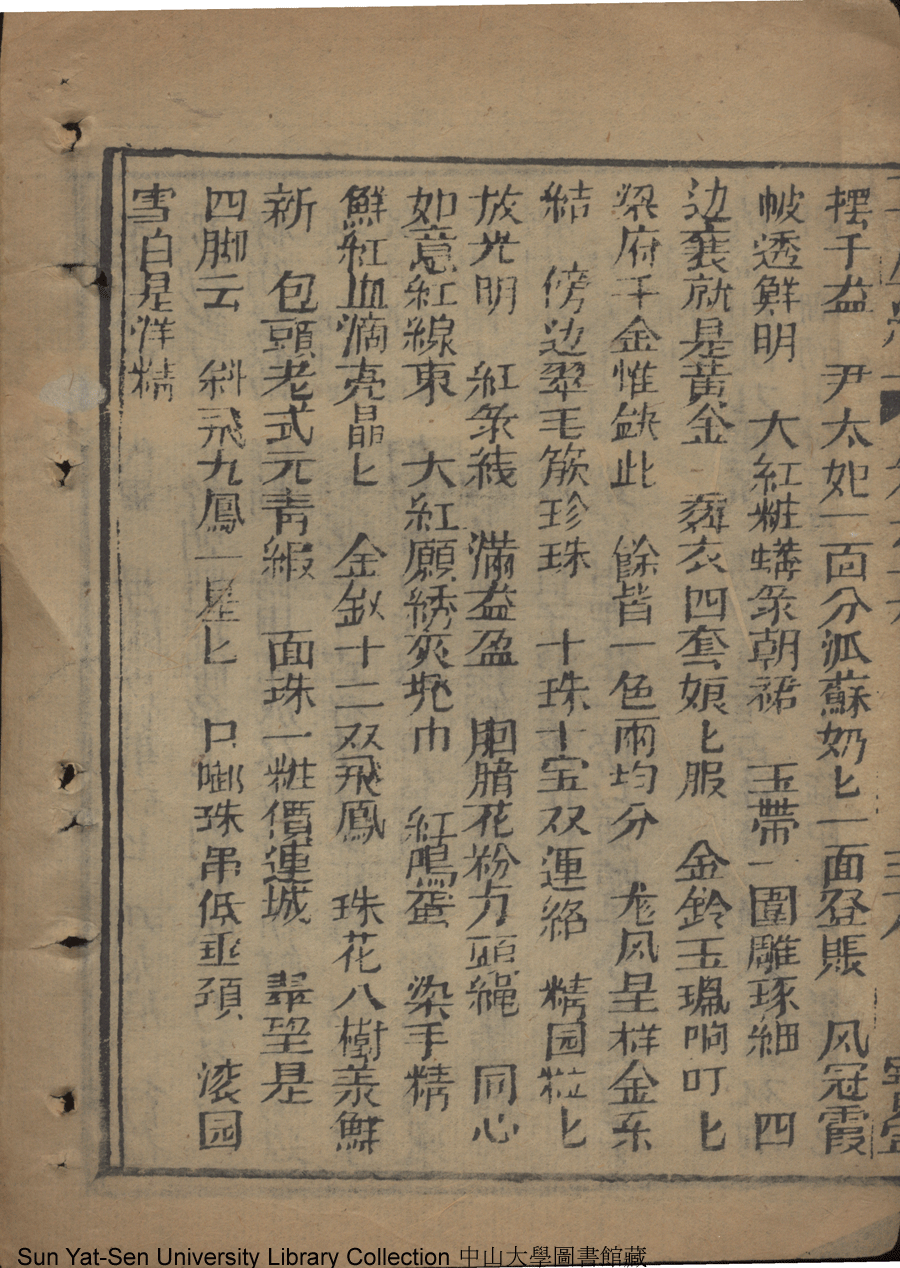 摆千益 尹太妃一面分泒蘇奶匕一面登賬 风冠霞
帔透鮮明 大紅粧蟒朝裙 玉帶一圍雕琢細 四
边襄就是黃金 衣四套娘匕服 金鈴玉珮响叮匕
梁府千金惟缺此 餘皆一色兩均分 龙风呈样金糸
結 傍边翠毛簇珍珠 十珠十宝双連絡 精园粒匕
放光明 紅綫 滿益盈 胭脂花粉方頭繩 同心
如意紅線束 大紅願綉夾巾 紅鳴蛋 染手精
鮮紅血滴亮晶匕 金釵十二双飛鳳 珠花八樹羡鮮
新 包頭老式元青緞 面珠一粧價連城 翠望是
四脚云 斜飛九鳳一星匕 口啣珠吊低垂頚 滚园
雪白是洋精
Sun Yat-Sen University Library Collection 中山大學圖書館藏